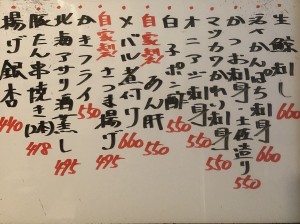 生鯨刺し 660
えんがわ刺身
かつお刺身・土佐造り 550
マツカワカレイ刺身 660
オニアジ刺身 550
白子ポン酢 660
自家製!あん肝 550
メバル煮付け 660
自家製!さつま揚げ 495
かきフライ 550
北海アサリ酒蒸し 495
豚たん串焼き(2本) 418
揚げ銀杏 440